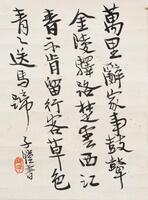 萬里辭家事鼓鼙
金陵驛路楚雲西江
春不肯留行客草色
青〻送馬蹄
子愷書